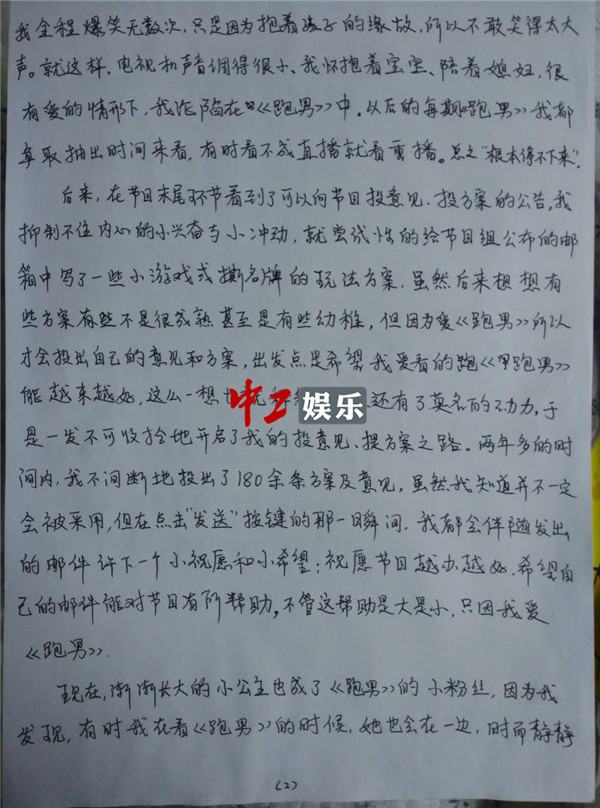 我全程爆笑无数次,只是因为抱着孩子的缘故,所以不敢笑得太大
声。就这样,电视机声音调得很小、我怀抱着宝宝、陪着媳妇,很
有爱的情形下,我沦陷在《跑男》中。以后的每期《跑男》我都
争取抽出时间来看,有时看不成直播就看重播。总之"根本停不下来"。
后来,在节目末尾环节看到了可以向节目投意见、投方案的公告,我
抑制不住内心的小兴奋与小冲动,就尝试性的给节目组公布的邮
箱中写了一些小游戏或撕名牌的玩法方案。虽然后来想想有
些方案有些不是很成熟甚至是有些幼稚,但因为爱《跑男》所以
才会投出自己的意见和方案,出发点是希望我爱看的跑《跑男》
能越来越好,这么一想 还有了莫名的动力,于
中工娱乐
是一发不可收拾地开启了我的投意见、提方案之路。两年多的时
间内,我不间断地投出了180余条方案及意见,虽然我知道并不一定
会被采用,但在点击"发送"按键的那一瞬间,我都会伴随发出
的邮件许下一个小祝愿和小希望:祝愿节目越办越好,希望自
己的邮件能对节目有所帮助,不管这帮助是大是小,只因我爱
《跑男》.
现在,渐渐长大的小公主也成了《跑男》的小粉丝,因为我
发现,有时我在看《跑男》的时候,她也会在一边,时而静静
(2)